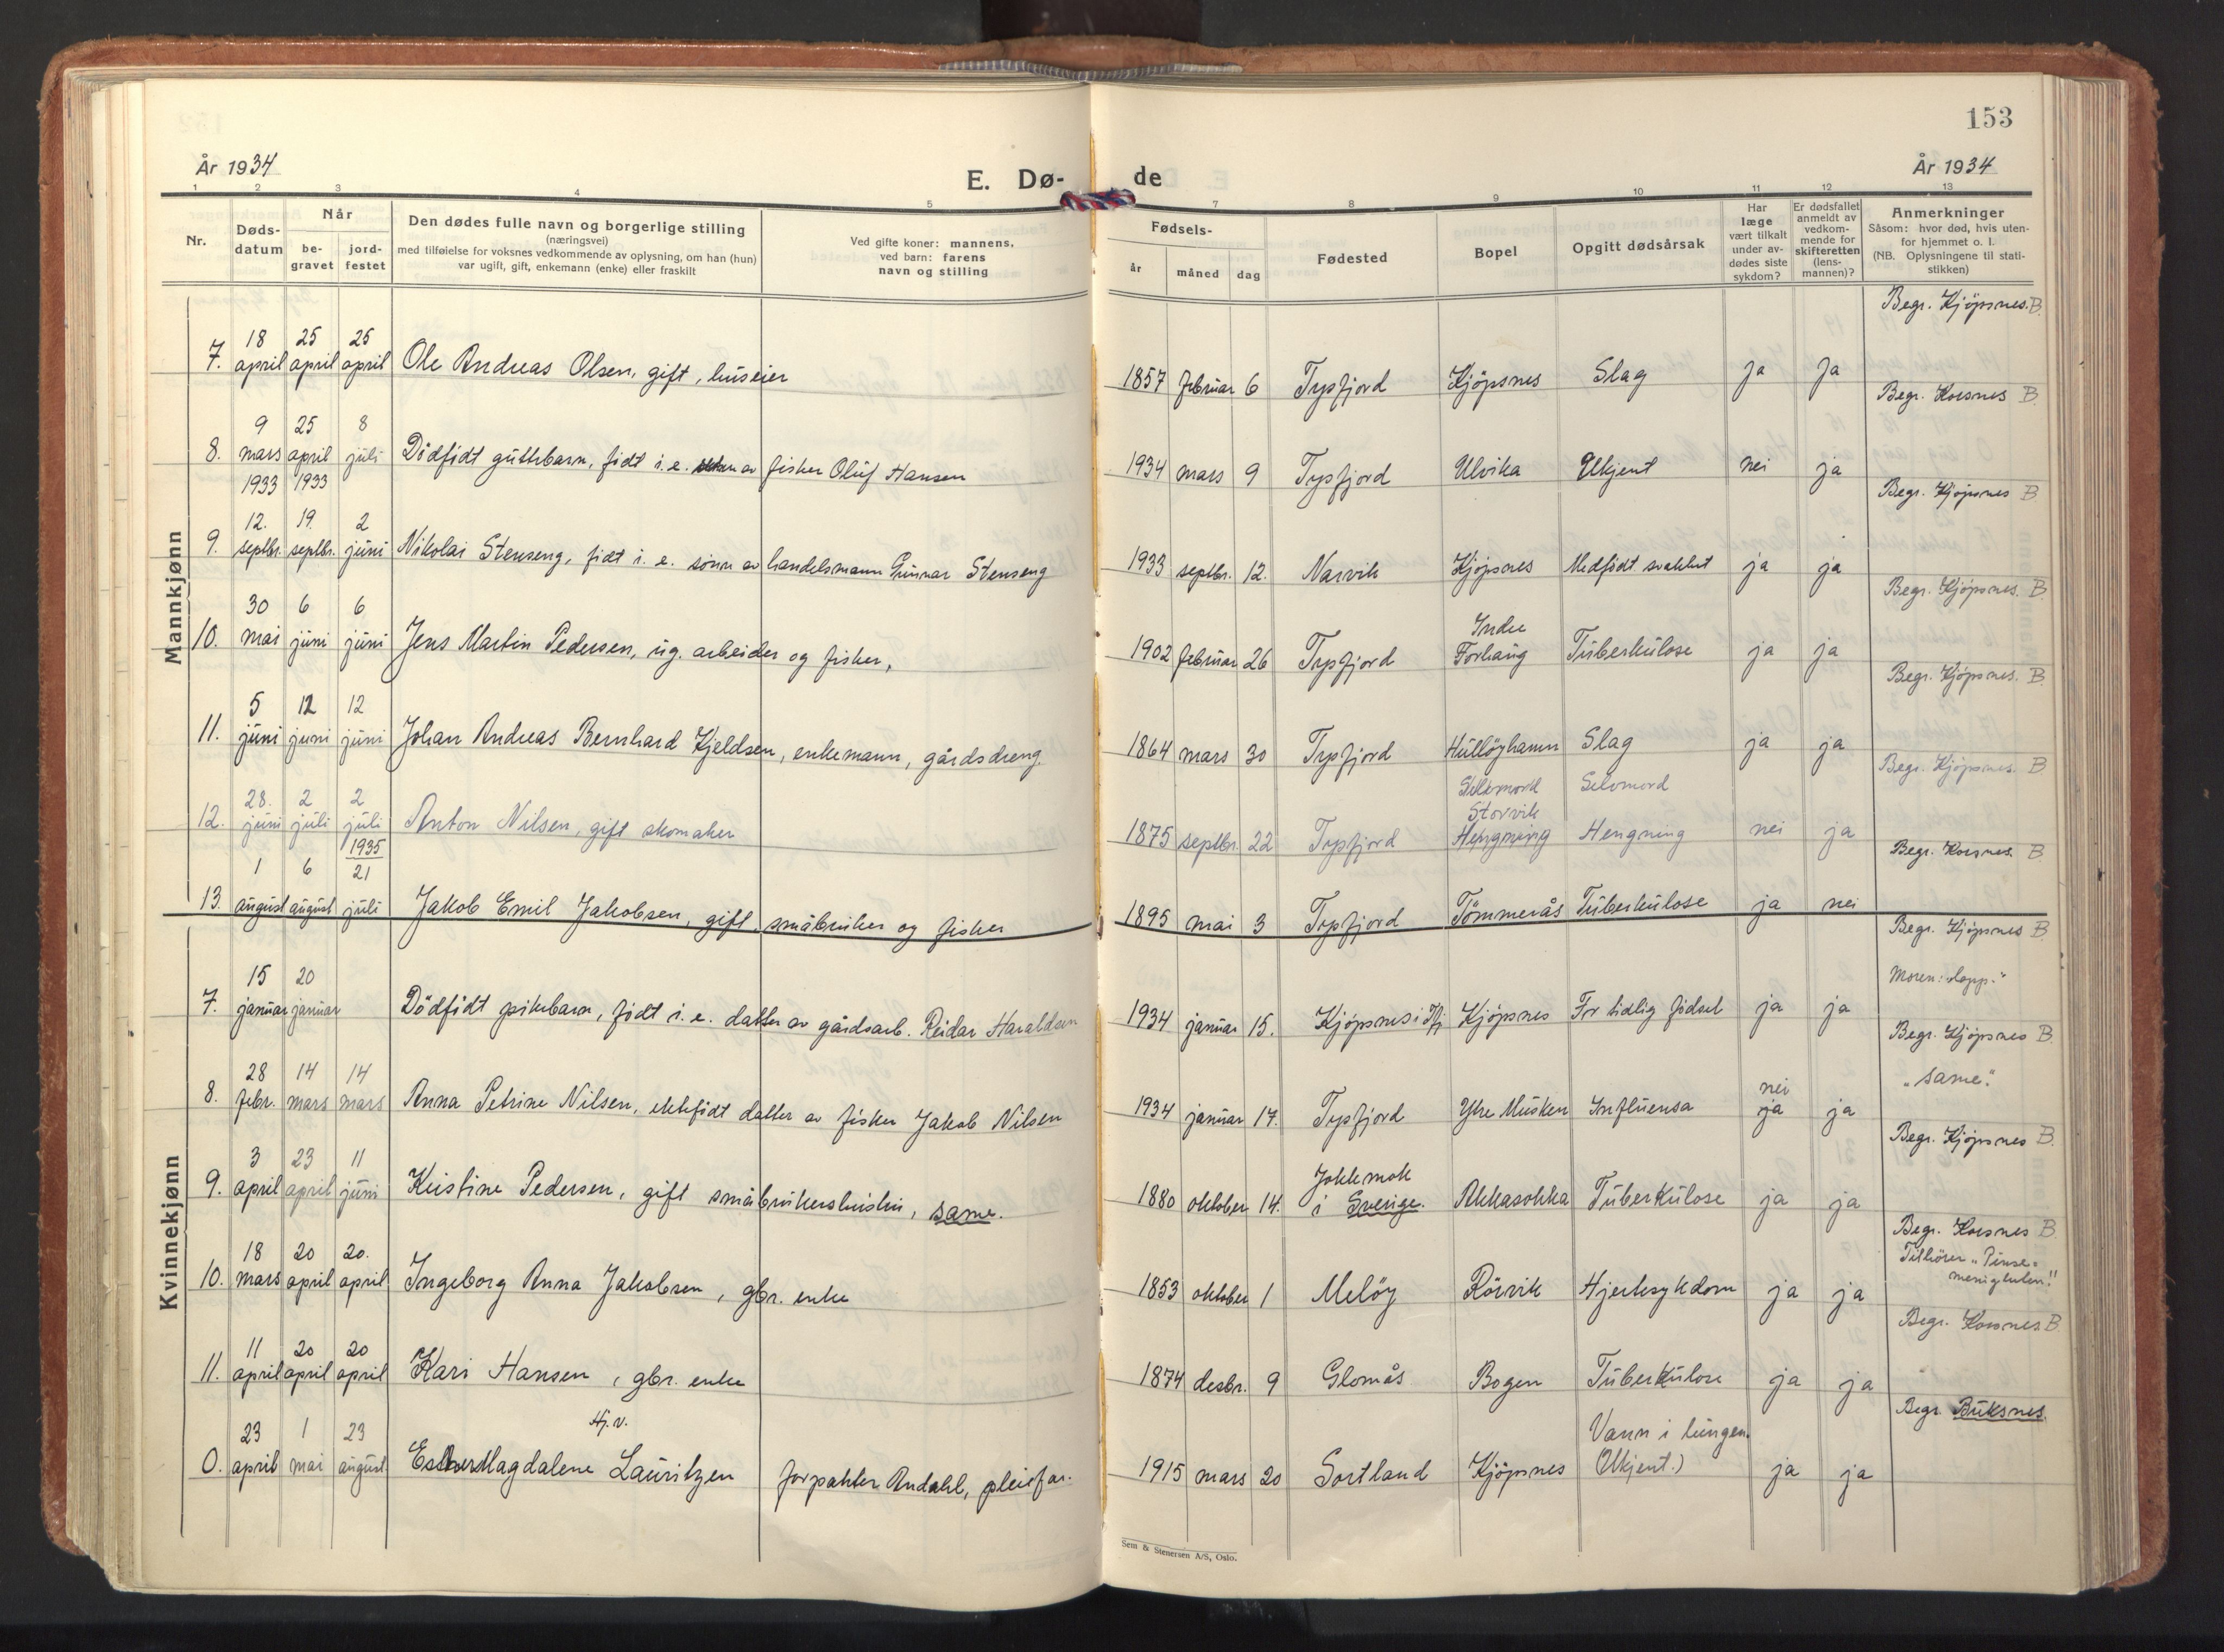 153
År 1934
E. Dø-
de
År 1934
1 2 3 4 5 7 8 9 10 11 12 13
Nr.
Døds-
datum
Når
be-
gravet
jord-
festet
Den dødes fulle navn og borgerlige stilling
(næringsvei)
med tilføielse for voksnes vedkommende av oplysning, om han (hun)
var ugift, gift, enkemann (enke) eller fraskilt
Ved gifte koner: mannens,
ved barn: farens
navn og stilling
Fødsels-
år måned dag
Fødested
Bopel
Opgitt dødsårsak
Har
læge
vært tilkalt
under av-
dødes siste
sykdom?
Er dødsfallet
anmeldt av
vedkom-
mende for
skifteretten
(lens-
mannen)?
Anmerkninger
Såsom: hvor død, hvis uten-
for hjemmet o. l.
(NB. Oplysningene til stati-
stikken)
Mannkjønn
Begr. Kjöpsnes. B.
18 25 25
7. april april april Ole Andreas Olsen, gift, huseier 1857 februar 6 Tysfjord Kjöpsnes Slag Ja Ja
Begr. Korsnes B.
9 25 8
8. mars april juli Dödfödt guttebarn, födt i. e. av fisker Oluf Hansen 1934 mars 9 Tysfjord Ulvika Ukjent nei ja
1933 1933
Begr. Kjöpsnes B
12. 19. 2
9. septbr. septbr. juni Nikolai Stenseng, födt i. e. sönn av handelsmann Gunnar Stenseng 1933 septbr. 12. Narvik Kjöpsnes Medfödt svakhet ja ja
Begr. Kjöpsnes. B.
30 6 6
Indre
10. mai juni juni Jens Martin Pedersen, ug. arbeider og fisker, 1902 februar 26 Tysfjord Forhaug Tuberkulose ja ja
Begr. Kjöpsnes. B.
5 12 12
11. juni juni juni Johan Andreas Bernhard Kjeldsen, enkemann, gårdsdreng. 1864 mars 30 Tysfjord Hullöyhamn Slag ja ja
Begr. Kjöpsnes. B
28. 2 2
Selvmord Selvmord
Storvik
12. juni juli juli Anton Nilsen, gift skomaker 1875 septbr. 22 Tysfjord Hengning Hengning nei ja
1935
Begr. Korsnes. B.
1 6 21
13. august august juli Jakob Emil Jakobsen, gift, småbruker og fisker 1895 mai 3 Tysfjord Tömmerås Tuberkulose ja nei
Kvinnekjønn
Begr. Kjöpsnes B
Moren: „lapp."
15 20
7. januar januar Dödfödt pikebarn, födt i. e. datter av gårdsarb. Reidar Haraldsen 1934 januar 15. Kjöpsnes i Tfj. Kjöpsnes For tidlig födsel ja ja
Begr. Kjöpsnes B.
„same".
28 14 14
nei
8. febr. mars mars Anna Petrine Nilsen, ektefödt datter av fisker Jakob Nilsen 1934 januar 17. Tysfjord Ytre Musken Influensa ja ja
Begr. Kjöpsnes B.
3 23 11
Jokkmok
9. april april juni Kristine Pedersen, gift småbrukershustru, same. 1880 oktober 14. i Sverige. Akkasokka Tuberkulose ja ja
Begr. Korsnes B
Tilhörer „Pinse=
menigheten."
18 20 20.
10. mars april april Ingeborg Anna Jakobsen, gbr. enke 1853 oktober 1 Melöy Rörvik Hjertesykdom ja ja
Begr. Korsnes B.
11 20 20
11. april april april Kari Hansen, gbr. enke 1874 desbr. 9 Glomås Bogen Tuberkulose ja ja
Begr. Buksnes.
Hj. v.
Vann i lungen.
23 1 23
0. april mai august Esther Magdalene Lauritzen forpakter Andahl, pleiefar. 1915 mars 20 Sortland Kjöpsnes (Ukjent.) ja ja
Sem & Stenersen A/S, Oslo.